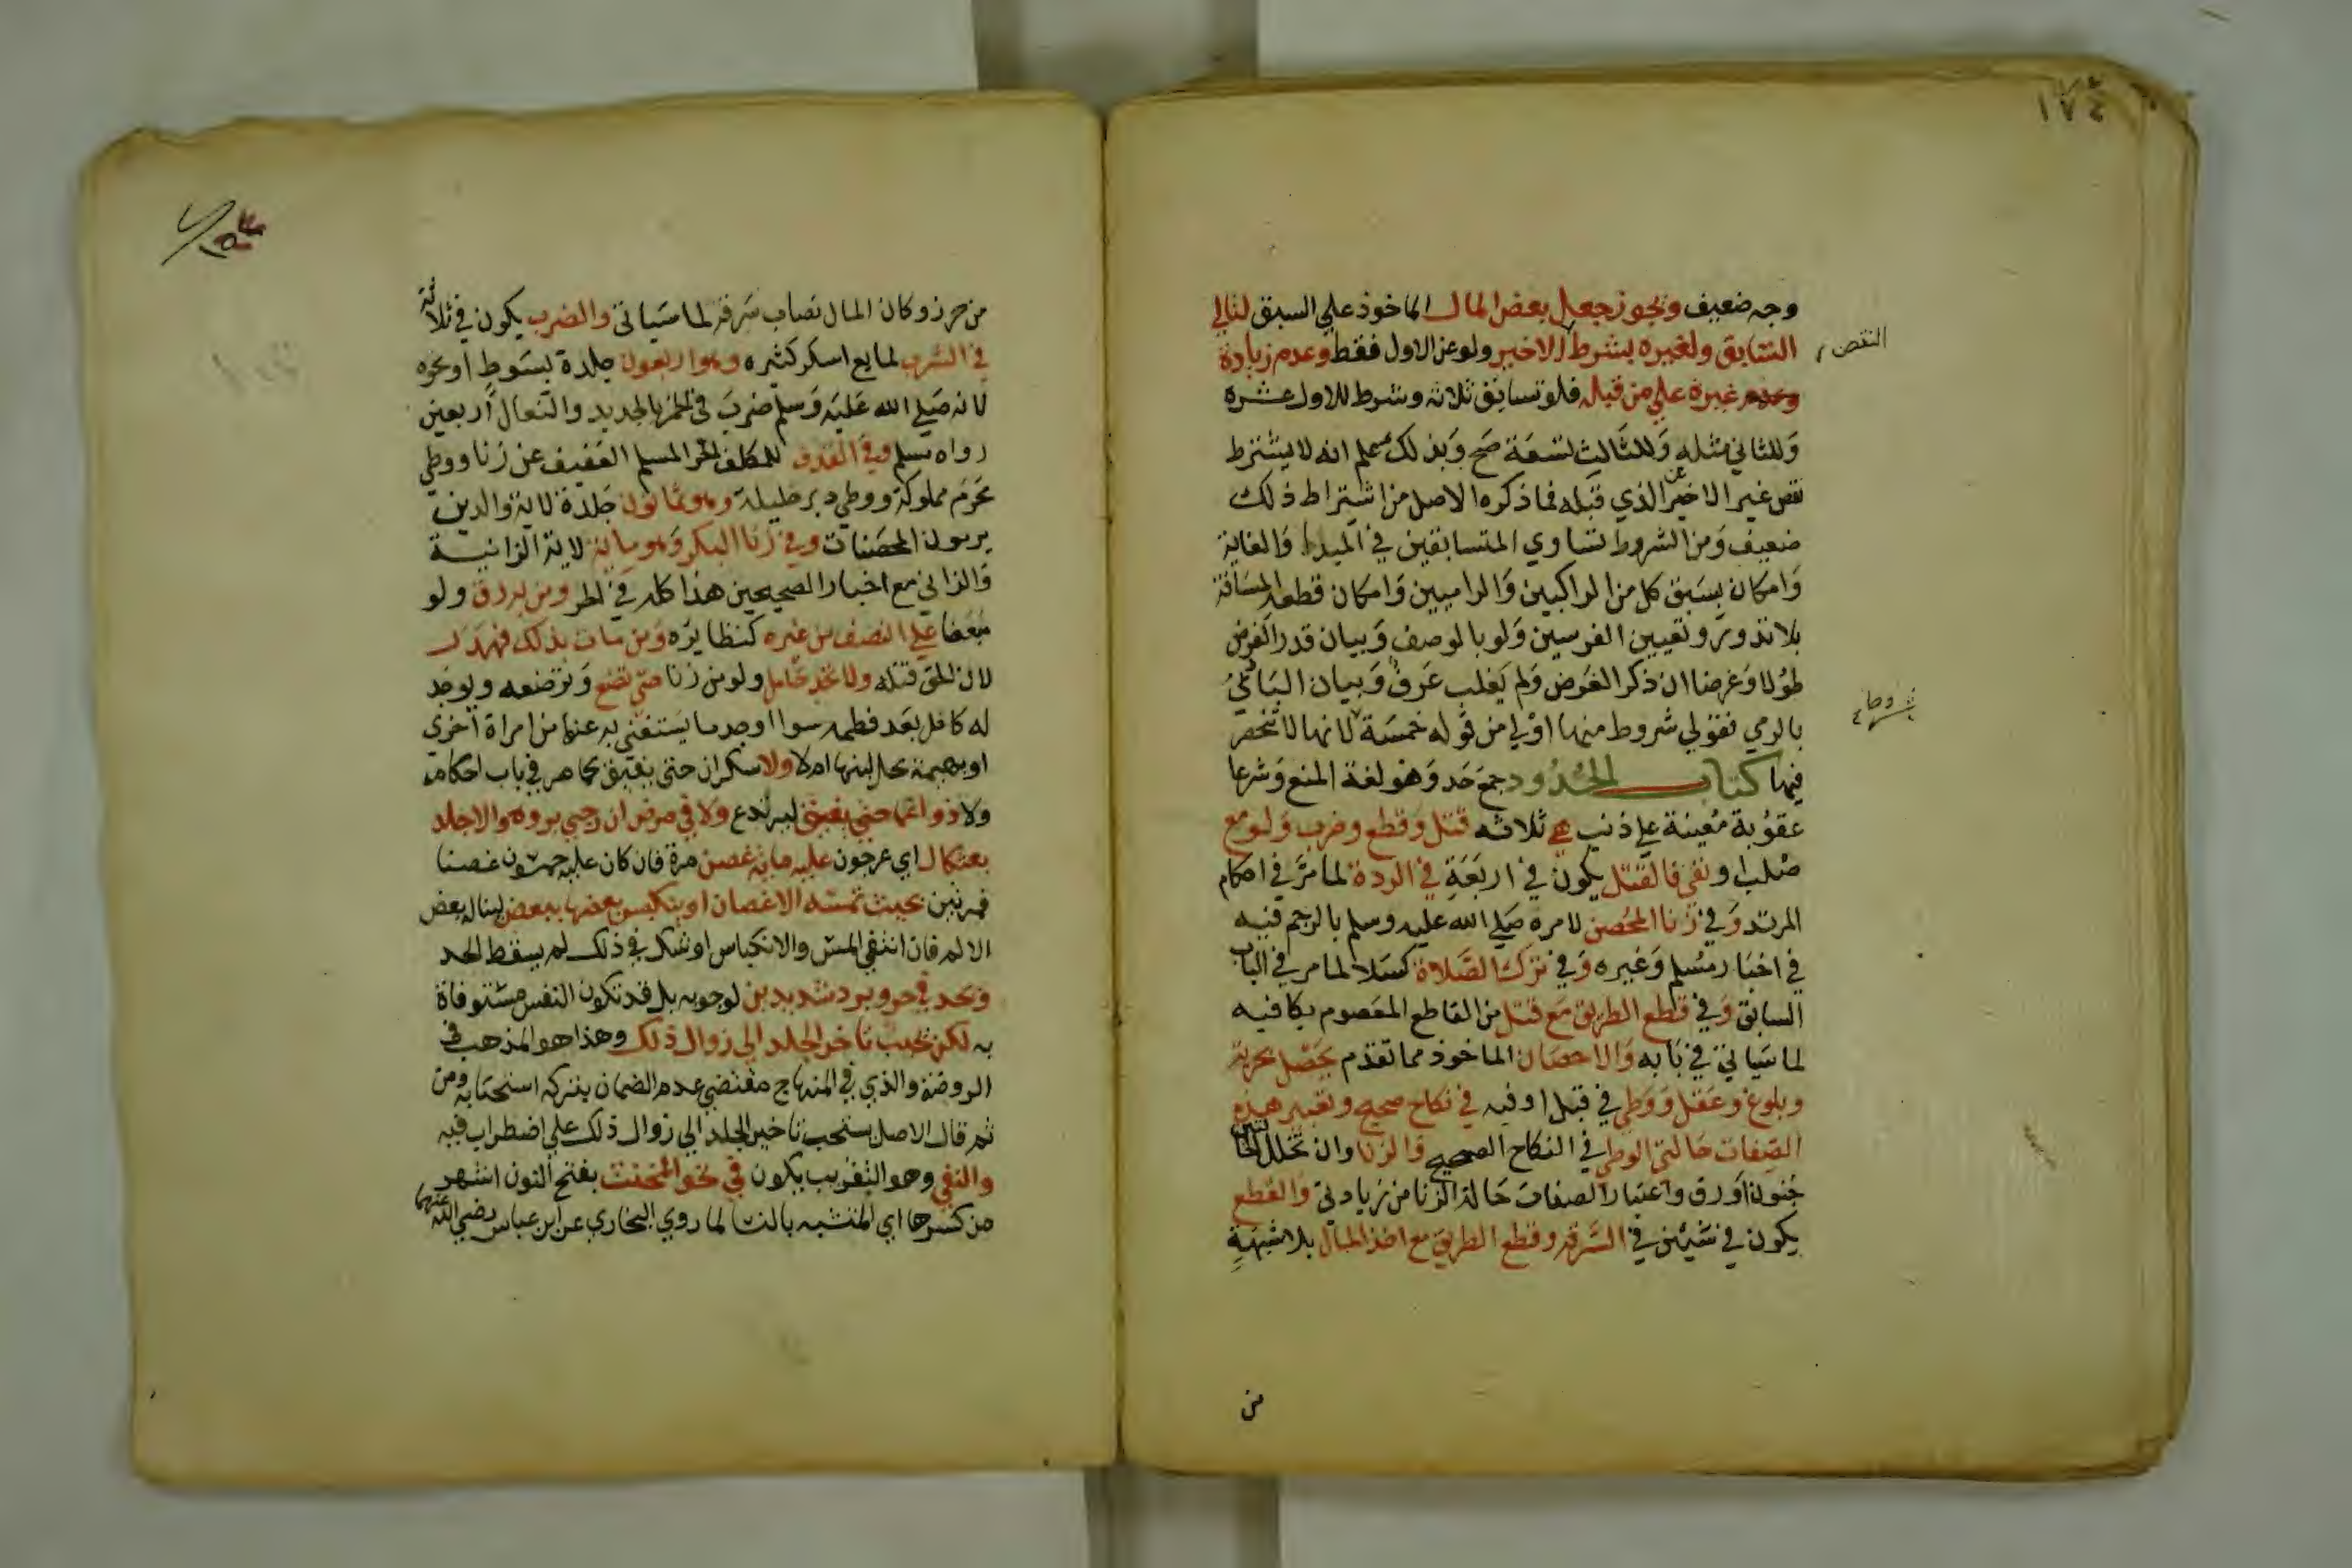 ١٧٤
وجه ضعيف ويجوز جعل بعض المال الماخوذ علي السبق لتالي
السابق ولغيره بشرط الاخير ولو عن الاول فقط وعدم زيادة
النقص
وعدم غيره علي من قبله فلو تسابق ثلاثه وشرط للاول عشره
وللثاني مثله وللثالث تسعة صح وبذلك علم انه لا يشترط
نقص غير الاخير عن الذي قبله فما ذكره الاصل من اشتراط ذلك
ضعيف ومن الشروط تساوي المتسابقين في المبدا والغاية
وامكان سبق كل من الراكبين والراميين وامكان قطعه المسافة
بلا ندور وتعيين الفرسين ولو بالوصف وبيان قدر الغرض
طولا وعرضا ان ذكر الغرض ولم يغلب عرف وبيان البادئ
بالرمي فقولي شروط منها اولي من قوله خمسة لانها لا تنحصر
شروطها
فيها كتاب الحدود جمع حد وهو لغة المنع وشرعا
عقوبة معينة علي ذنب هي ثلاثه قتل وقطع وضرب ولو مع
صلب او نفي فالقتل يكون في اربعة في الردة لما مر في احكام
المرتد وفي زنا المحصن لامره صلي الله عليه وسلم بالرجم فيه
في اخبار مسلم وغيره وفي ترك الصلاة كسلا لما مر في الباب
السابق وفي قطع الطريق مع قتل من القاطع المعصوم يكافيه
لما سياتي في بابه والاحصان الماخوذ مما تقدم يحصل بحرية
وبلوغ وعقل ووطي في قبل اوفيه في نكاح صحيح وتعتبر هذه
الصفات حالتي الوطي في النكاح الصحيح والزنا وان تخلل الحالتين
جنون او رق واعتبار الصفات حالة الزنا من زيادتي والقطع
يكون في شيئين في السرقة وقطع الطريق مع اخذ المال بلا شبهة
من
من حرز وكان المال نصاب سرقة لما سياتي والضرب يكون في ثلاثة
في الشرب لمايع اسكر كثيره وهو اربعون جلدة بسوط او نحوه
لانه صلي الله عليه وسلم ضرب في الخمر بالجريد والنعال اربعين
رواه مسلم وفي القذف للمكلف الحر المسلم العفيف عن زنا ووطي
محرم مملوكة ووطي دبر حليلة وهو ثمانون جلدة لاية والذين
يرمون المحصنات وفي زنا البكر وهو ماية لاية الزانية
والزاني مع اخبار الصحيحين هذا كله في الحر ومن به رق ولو
مبعضا علي النصف من غيره كنظايره ومن مات بذلك فهدر
لان الحق قتله ولا تحد حامل ولو من زنا حتي تضع وترضعه ويوجد
له كافل بعد فطمه سوا اوجد ما يستغني به عنها من امراة اخري
او بهيمة يحل لبنها ام لا ولا سكران حتي يفيق كما مر في باب احكامه
ولا ذو اغما حتي يفيق ليرتدع ولا في مرض ان رجي بروه والا جلد
بعثكال اي عرجون عليه ماية غصن مرة فان كان عليه خمسون غصنا
فمرتين بحيث تمسه الاغصان او ينكبس بعضها ببعض ليناله بعض
الالم فان انتفي المس والانكباس او شك في ذلك لم يسقط الحد
ويحد في حر وبرد شديدين لوجوبه بل قد تكون النفس مستوفاة
به لكن يجب تاخر الجلد الي زوال ذلك وهذا هو المذهب في
الروضة والذي في المنهاج مقتضي عدم الضمان بتركه استحبابه ومن
ثم قال الاصل يستحب تاخير الجلد الي زوال ذلك علي اضطراب فيه
والنفي وهو التغريب يكون في نحو المخنث بفتح النون اشهر
من كسرها اي المتشبه بالنسا لما روي البخاري عن ابن عباس رضي الله عنهما